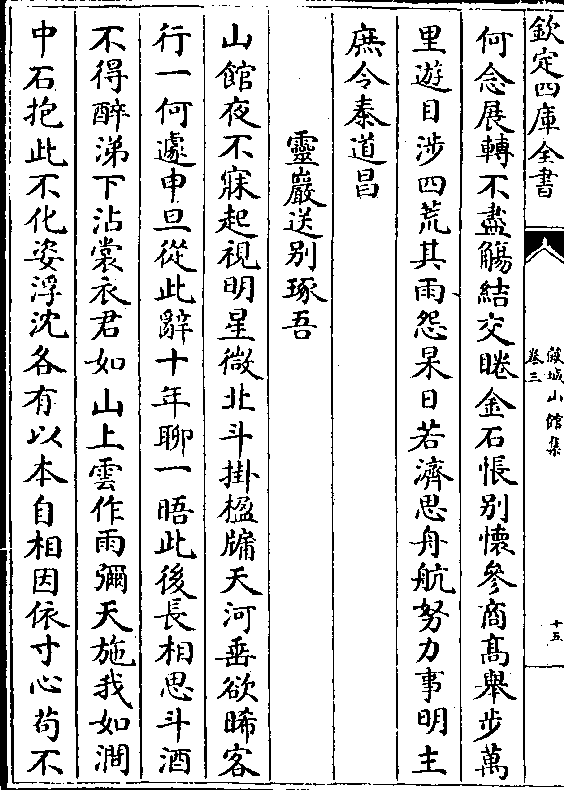 欽定四庫全書
蘇城山館集
卷三
十五
何念展轉不盡觴結交睠金石悵别懷參商髙舉步萬
里遊目涉四荒其雨怨杲日若濟思舟航努力事明主
庶令泰道昌
靈巖送别琢吾
山館夜不寐起視明星微北斗掛楹牖天河垂欲晞客
行一何遽申旦從此辭十年聊一晤此後長相思斗酒
不得醉涕下沾裳衣君如山上雲作雨彌天施我如澗
中石抱此不化姿浮沈各有以本自相因依寸心苟不